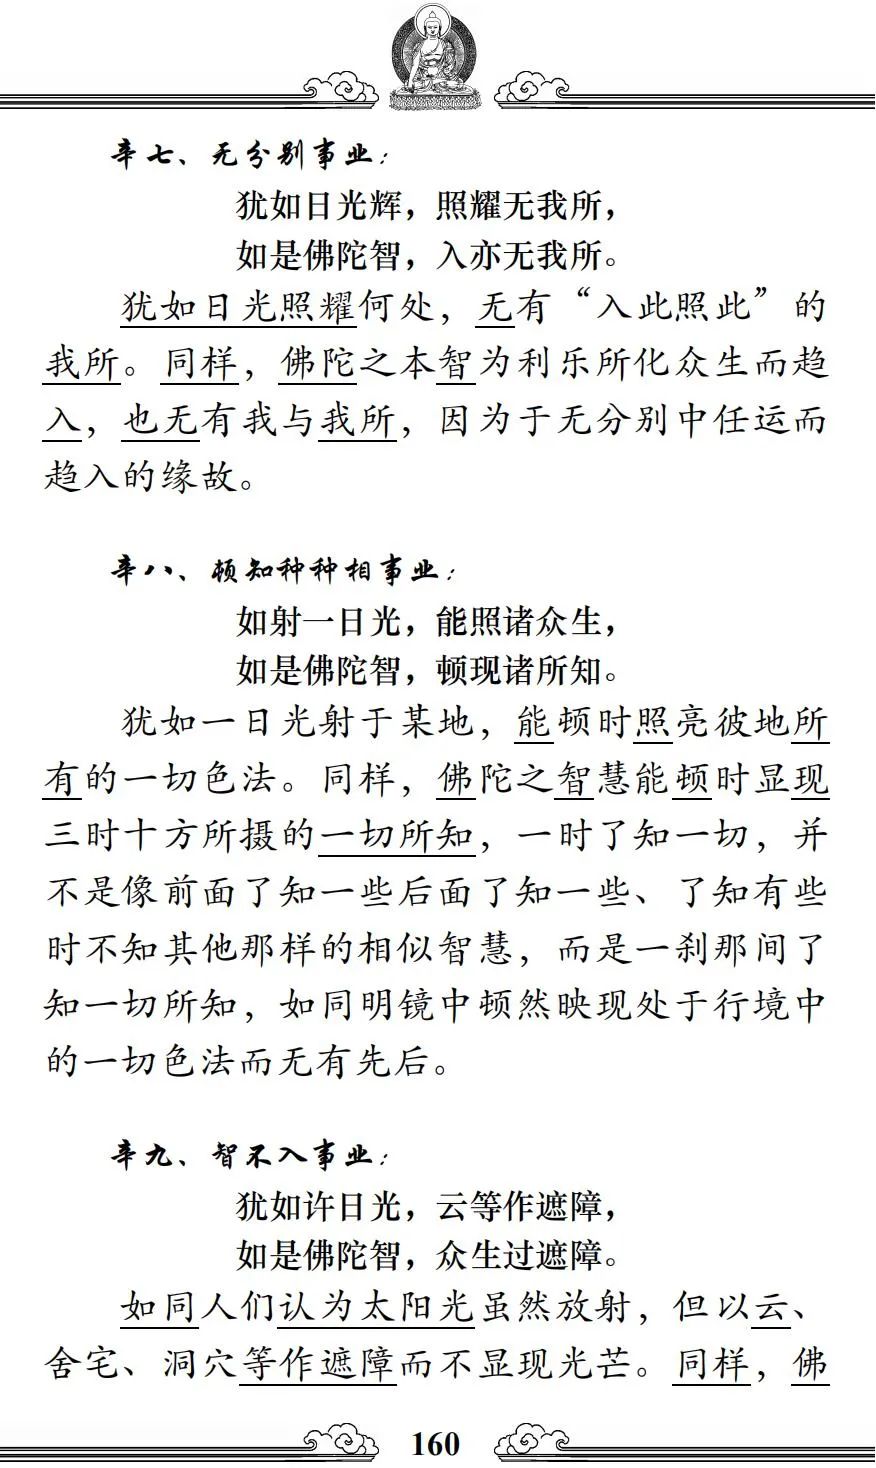 辛七、无分别事业：
犹如日光辉，照耀无我所，
如是佛陀智，入亦无我所。
犹如日光照耀何处，无有“入此照此”的
我所。同样，佛陀之本智为利乐所化众生而趋
入，也无有我与我所，因为于无分别中任运而
趋入的缘故。
辛八、顿知种种相事业：
如射一日光，能照诸众生，
如是佛陀智，顿现诸所知。
犹如一日光射于某地，能顿时照亮彼地所
有的一切色法。同样，佛陀之智慧能顿时显现
三时十方所摄的一切所知，一时了知一切，并
不是像前面了知一些后面了知一些、了知有些
时不知其他那样的相似智慧，而是一刹那间了
知一切所知，如同明镜中顿然映现处于行境中
的一切色法而无有先后。
辛九、智不入事业：
犹如许日光，云等作遮障，
如是佛陀智，众生过遮障。
如同人们认为太阳光虽然放射，但以云、
舍宅、洞穴等作遮障而不显现光芒。同样，佛
160